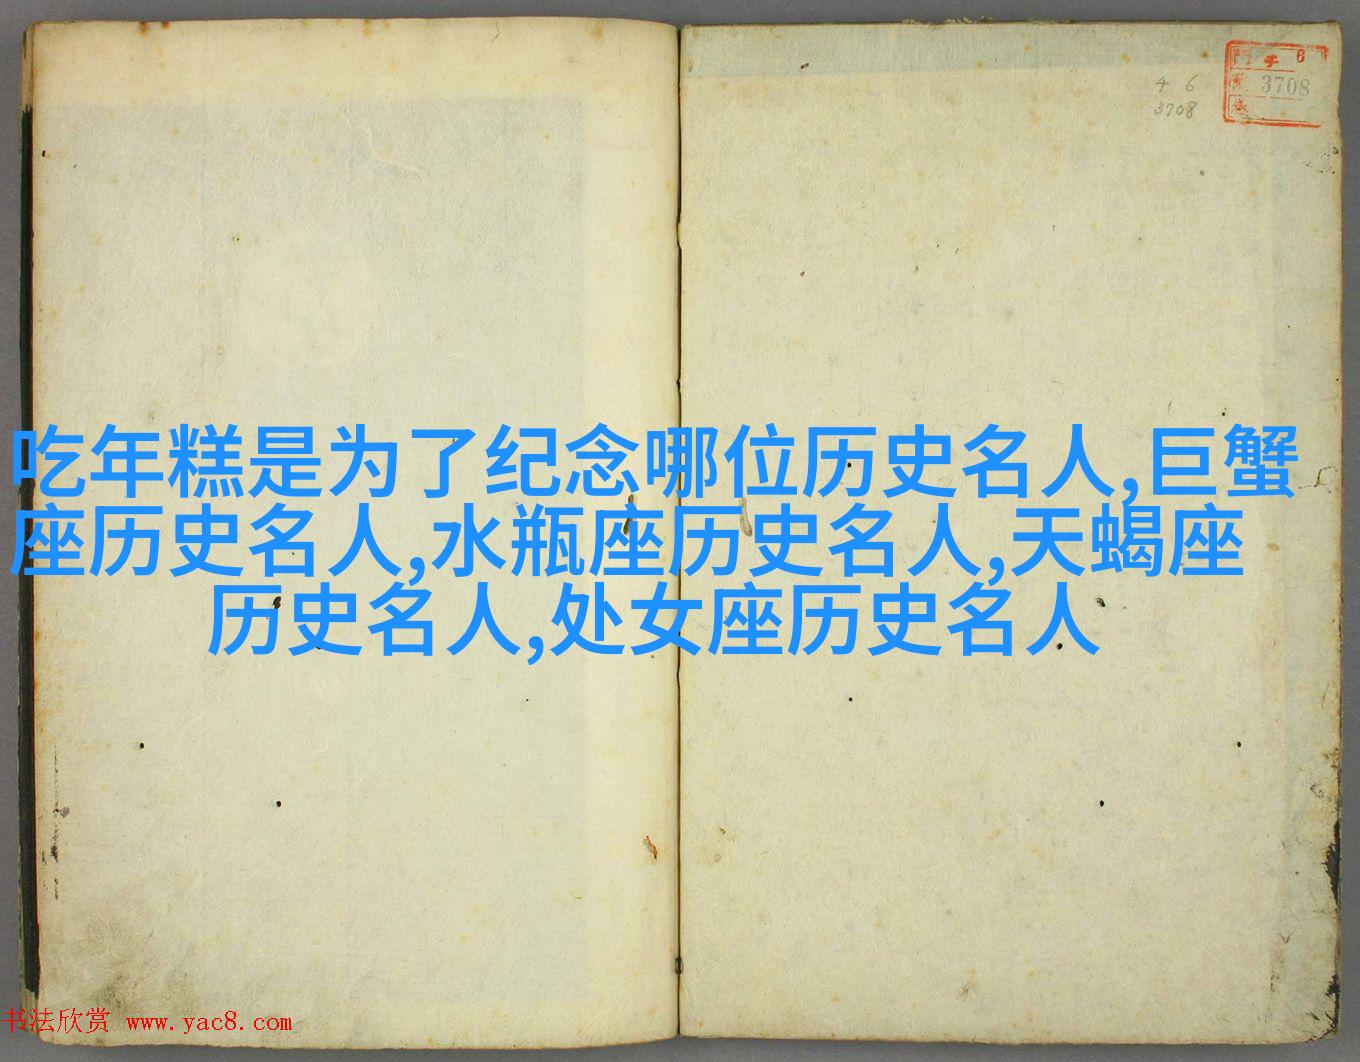 6
3708
4 6
3708
吃年糕是为了纪念哪位历史名人,巨蟹
座历史名人,水瓶座历史名人,天蝎座
历史名人,处女座历史名人
书法欣赏 www.yac8.com